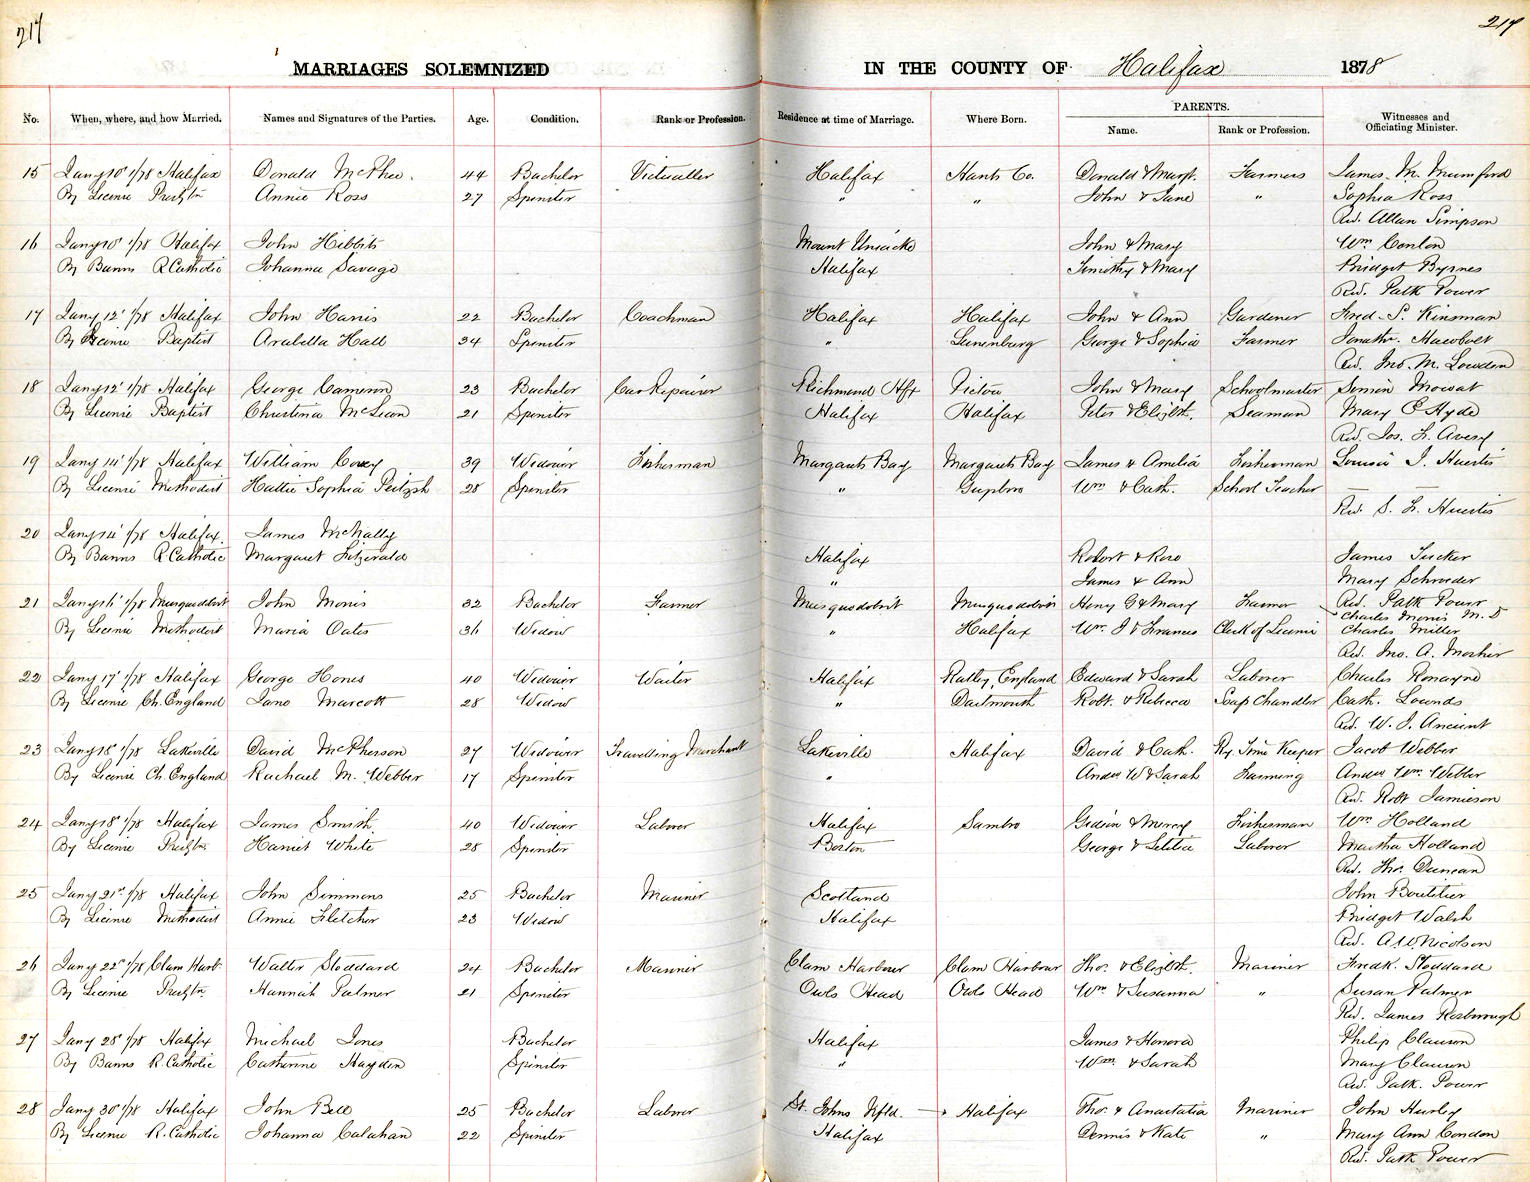 217 217
MARRIAGES SOLEMNIZED IN THE COUNTY OF Halifax 1878
No. When, where, and how Married. Names and Signatures of the Parties. Age. Condition. Rank or Profession. Residence at time of Marriage. Where Born. PARENTS. Name. Rank or Profession. Witnesses and Officiating Minister.
15 Jany 10' 1/78 Halifax Donald McPhee. 44 Bachelor Victualler Halifax Hants Co. Donald & Margt. Farmers James M. Mumford
By Licence Presbytn Annie Ross 27 Spinster " " John & Jane " Sophia Ross
Rev. Allan Simpson
16 Jany 10' 1/78 Halifax John Hibbits Mount Uniacke John & Mary Wm Conlon
By Banns R Catholic Johanna Savage Halifax Timothy & Mary Bridget Byrnes
Rev. Patk Power
17 Jany 12' 1/78 Halifax John Harris 22 Bachelor Coachman Halifax Halifax John & Ann Gardener Fred. P. Kinsman
By Licence Baptist Arabella Hall 34 Spinster " Lunenburg George & Sophia Farmer
Rev. Jno. M. Lowden
18 Jany 12' 1/78 Halifax George Cameron 23 Bachelor Car Repairer Richmond Hfx Pictou John & Mary Schoolmaster Mowat
By Licence Baptist Christina McLean 21 Spinster Halifax Halifax Peter & Elizbth. Seaman Mary E Hyde
Rev. Jos. F. Avery
19 Jany 14' 1/78 Halifax William Covey 39 Widower Fisherman Margarets Bay Margarets Bay James & Amelia Fisherman Louisa J. Huestis
By Licence Methodist Hattie Sophia 28 Spinster " Guysboro Wm & Cath. School Teacher —
Rev. S. F. Huestis
20 Jany 14' 1/78 Halifax. James McNally
By Banns R Catholic Margaret Fitzgerald Halifax Robert & Rose James Tucker
" James & Ann Mary Schroeder
21 Jany 16' 1/78 Musquodoboit John Morris 32 Bachelor Farmer Musquodoboit Musquodoboit Henry G & Mary Farmer Rev. Patk Power
Charles Morris M. D
By Licence Methodist Maria Oates 36 Widow " Halifax Wm. J & Frances Clerk of Licence Charles Miller
Rev. Jno. A. Mosher
22 Jany 17' 1/78 Halifax George Hones 40 Widower Waiter Halifax Ratley, England Edward & Sarah Laborer Charles Romayne
By Licence Ch. England Jane Marcott 28 Widow " Dartmouth Robt. & Rebecca Soap Chandler Cath. Lounds
Rev. W. J. Ancient
23 Jany 18' 1/78 Lakeville David McPherson 27 Widower Travelling Merchant Lakeville Halifax David & Cath. Ry Time Keeper Jacob Webber
By Licence Ch. England Rachael M. Webber 17 Spinster " Andw W & Sarah Farming Andw Wm. Webber
Rev. Robt Jamieson
24 Jany 18' 1/78 Halifax James Smith 40 Widower Laborer Halifax Sambro Gideon & Mercy Fisherman Wm Holland
By Licence Presbytn Harriet White 28 Spinster Boston George & Letitia Laborer Martha Holland
Rev. Thos. Duncan
25 Jany 21st 1/78 Halifax John Simmons 25 Bachelor Mariner Scotland John Boutilier
By Licence Methodist Annie Fletcher 23 Widow Halifax Bridget Walsh
Rev. A.W. Nicolson
26 Jany 22nd 1/78 Clam Harb. Walter Stoddard 24 Bachelor Mariner Clam Harbour Clam Harbour Thos. & Elizbth. Mariner Fredk. Stoddard
By Licence Presbytn Hannah Palmer 21 Spinster Owls Head Owls Head Wm & Susanna " Susan Palmer
Rev. James Rosborough
27 Jany 28' 1/78 Halifax Michael Jones Bachelor Halifax James & Honora Philip Clauson
By Banns R. Catholic Catherine Hayden Spinster " Wm & Sarah Mary Clauson
Rev. Patk. Power
28 Jany 30' 1/78 Halifax John Bell 25 Bachelor Laborer St. Johns Nfld. Halifax Thos. & Anastatia Mariner John Hurley
By Licence R. Catholic Johanna Calahan 22 Spinster Halifax Dennis & Kate " Mary Ann Condon
Rev. Patk Power